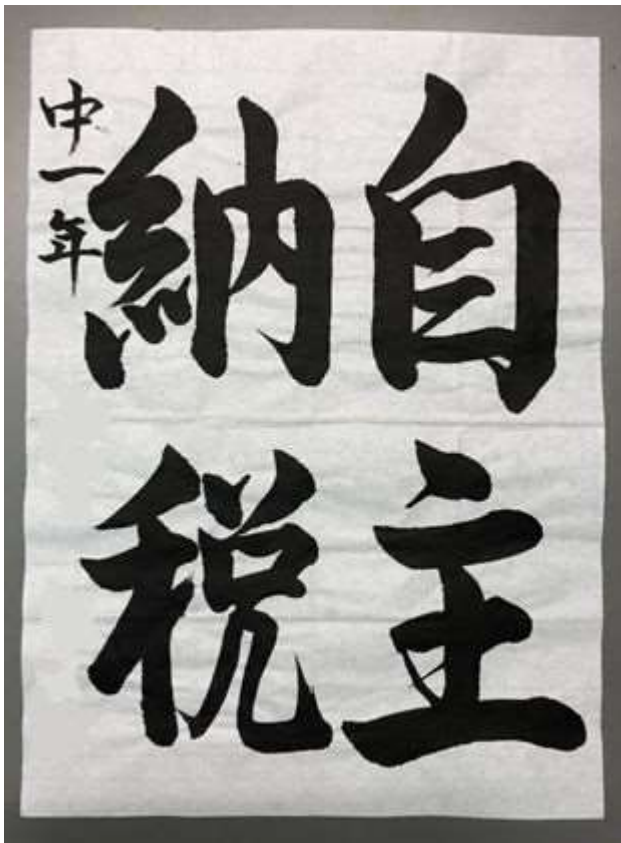 自主
納税
中一年